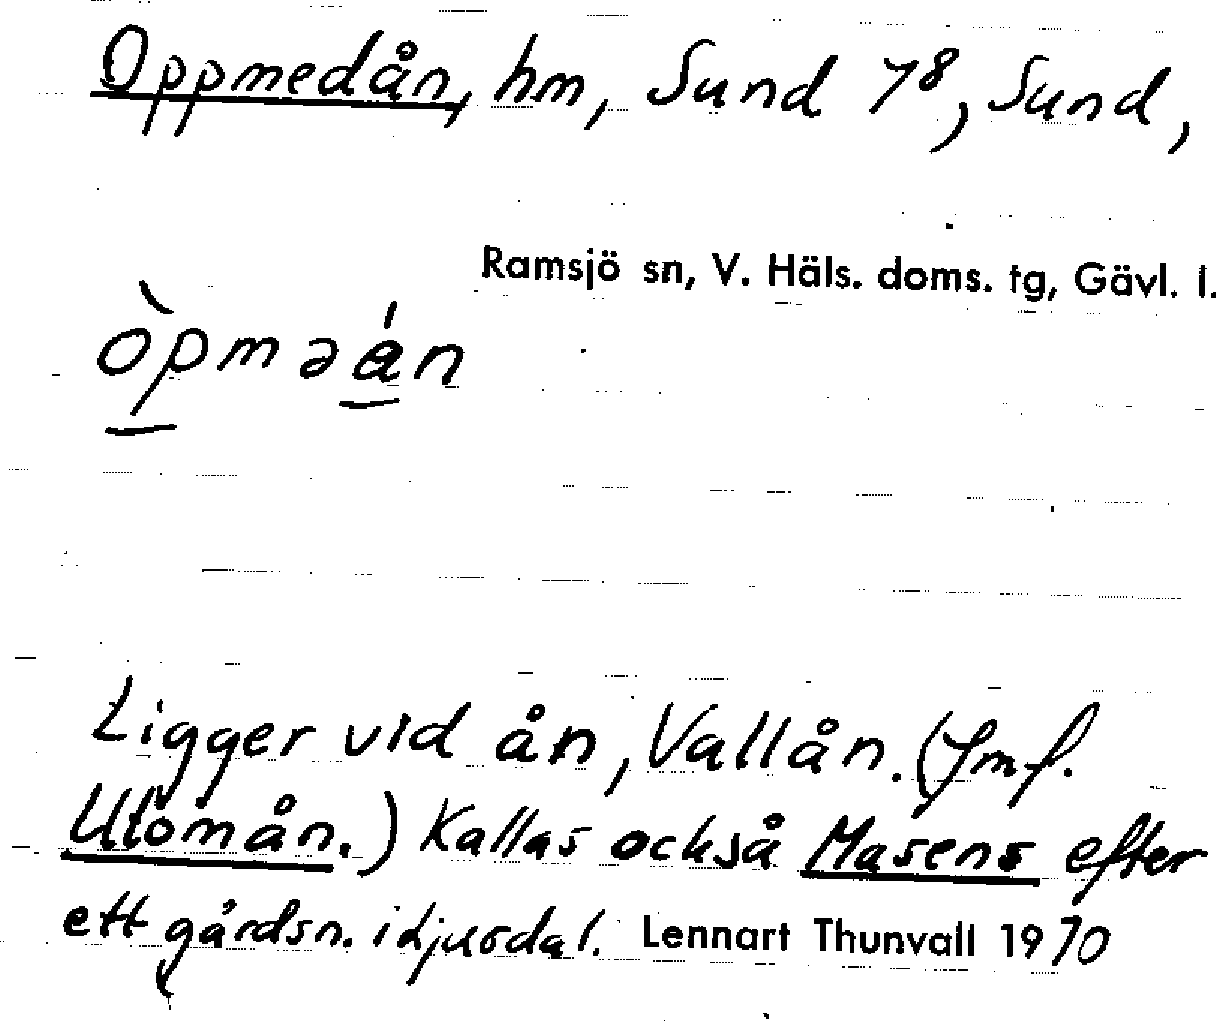 Oppmedån, hm, Sund 7⁸, Sund,
Ramsjö sn, V. Häls. doms. tg, Gävl. l.
òpməån
Ligger vid ån, Vallån. (Jmf.
Utomån.) Kallas också Masens efter
ett gårdsn. i Ljusdal. Lennart Thunvall 1970